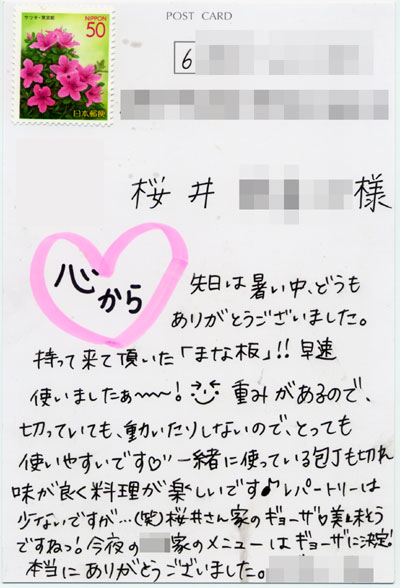 POST CARD
サツキ・東京都
NIPPON
50
日本郵便
6
桜井 様
心から
先日は暑い中、どうも
ありがとうございました。
持って来て頂いた「まな板」!! 早速
使いましたぁ〜〜! 重みがあるので、
切っていても、動いたりしないので、とっても
使いやすいです♡ 一緒に使っている包丁も切れ
味が良く料理が楽しいです♪ レパートリーは
少ないですが…(笑)桜井さん家のギョーザ美味そう
ですねっ!今夜の 家のメニューはギョーザに決定!
本当にありがとうございました。